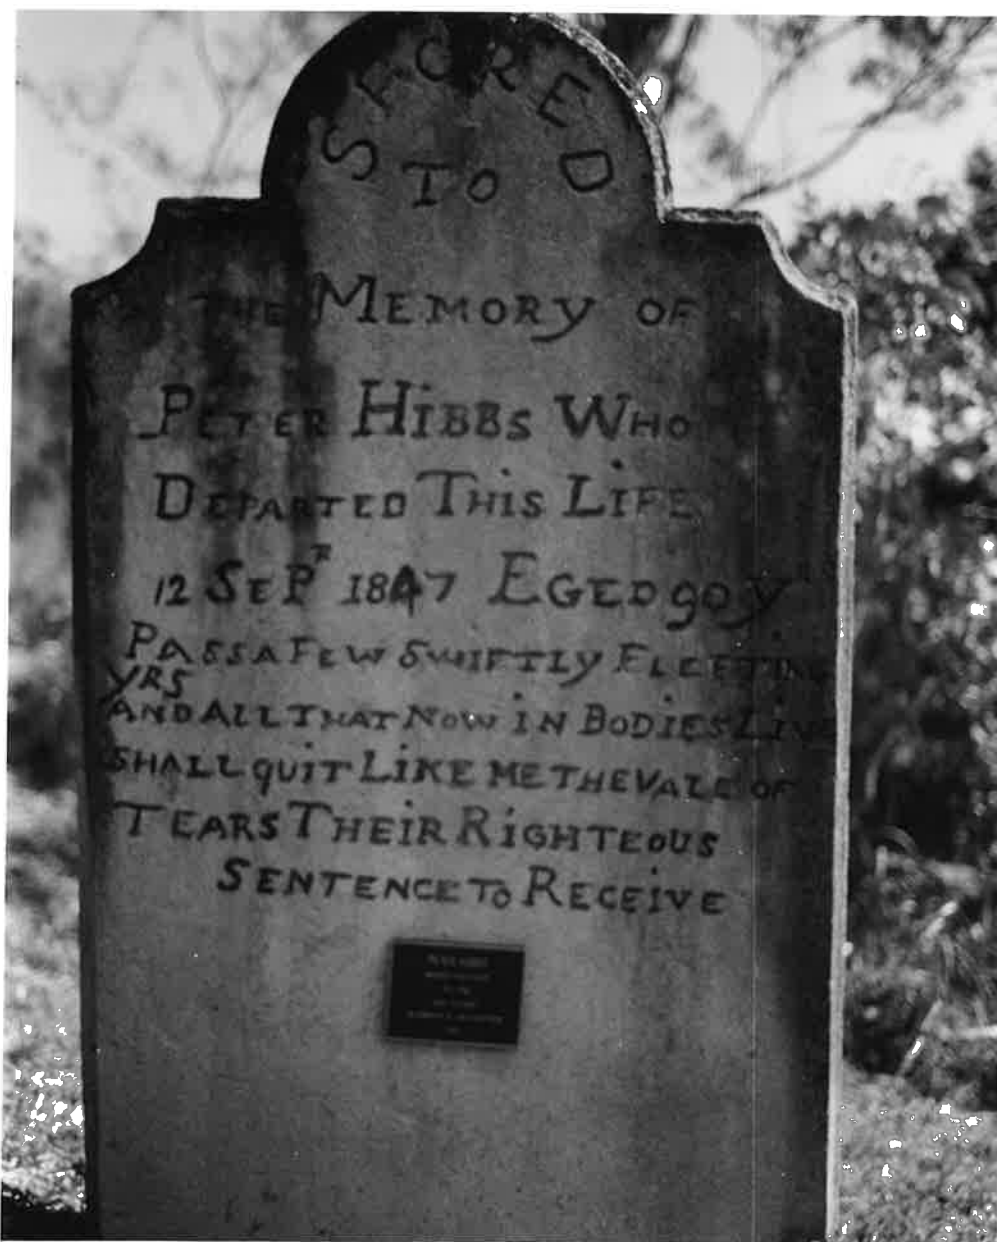 SACRED
TO
THE MEMORY OF
PETER HIBBS WHO
DEPARTED THIS LIFE
12 SEPT 1847 EGED 90 Y
PASS A FEW SWIFTLY FLEETING
YRS
AND ALL THAT NOW IN BODIES LIVE
SHALL QUIT LIKE ME THE VALE OF
TEARS THEIR RIGHTEOUS
SENTENCE TO RECEIVE
PETER HIBBS